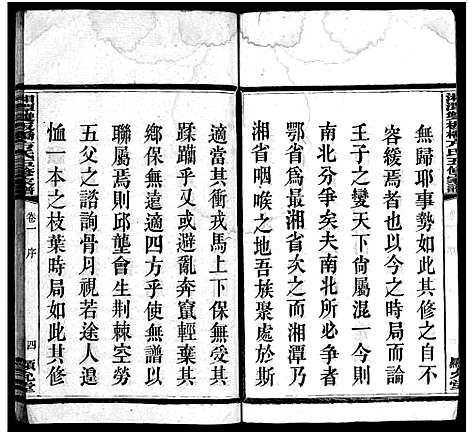 無歸耶事勢如此其修之自不
容緩焉一也以今之時局而論
壬子之變天下尚屬混一今則
南北分爭矣夫南北所必爭者
鄂省爲最湘省次之而湘潭乃
湘省咽喉之地吾族聚處於斯
適當其衝戎馬上下保無受其
蹂躪乎矣或避亂奔竄輕棄其
鄉保無遺適四方乎使無譜以
聯屬焉則邱壟會生荆棘空勞
五父之諮詢骨月視若途人遑
恤一本之枝葉時局如此其修
卷一 序
四